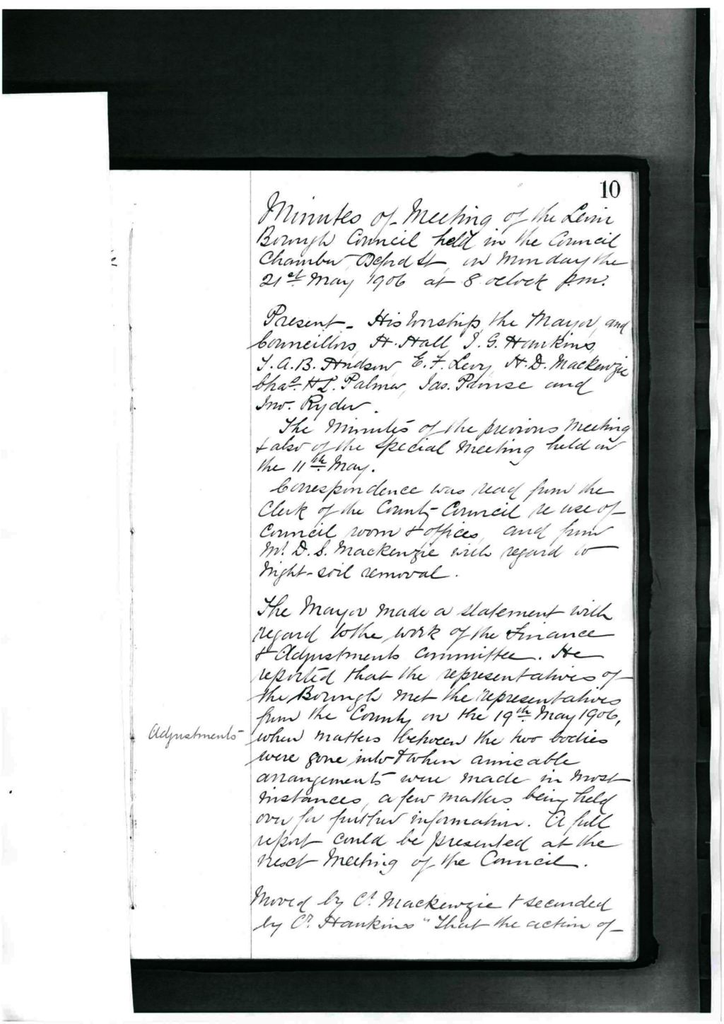 10
Minutes of Meeting of the Levin
Borough Council held in the Council
Chamber, Oxford St, on Monday the
21st May 1906 at 8 oclock p.m.
Present - His Worship the Mayor, and
Councillors H. Hall J. G. Hankins,
E. F. Levy, H. D. Mackenzie
Chas. H. Palmer, Jas. Prouse and
Jno. Ryder.
The Minutes of the previous Meeting
& also of the Special Meeting held on
the 11th May.
Correspondence was read from the
Clerk of the County Council re use of
Council room & offices, and from
Mr D. S. Mackenzie with regard to
Night-soil removal.
The Mayor made a statement with
regard to the work of the Finance
& Adjustments Committee. He
reported that the representatives of
the Borough met the representatives
from the County on the 19th May 1906,
Adjustments
when matters between the two bodies
were gone into & when amicable
arrangements were made in most
instances, a few matters being held
over for further information. A full
report could be presented at the
next Meeting of the Council.
Moved by Cr. Mackenzie & seconded
by Cr. Hankins "That the action of